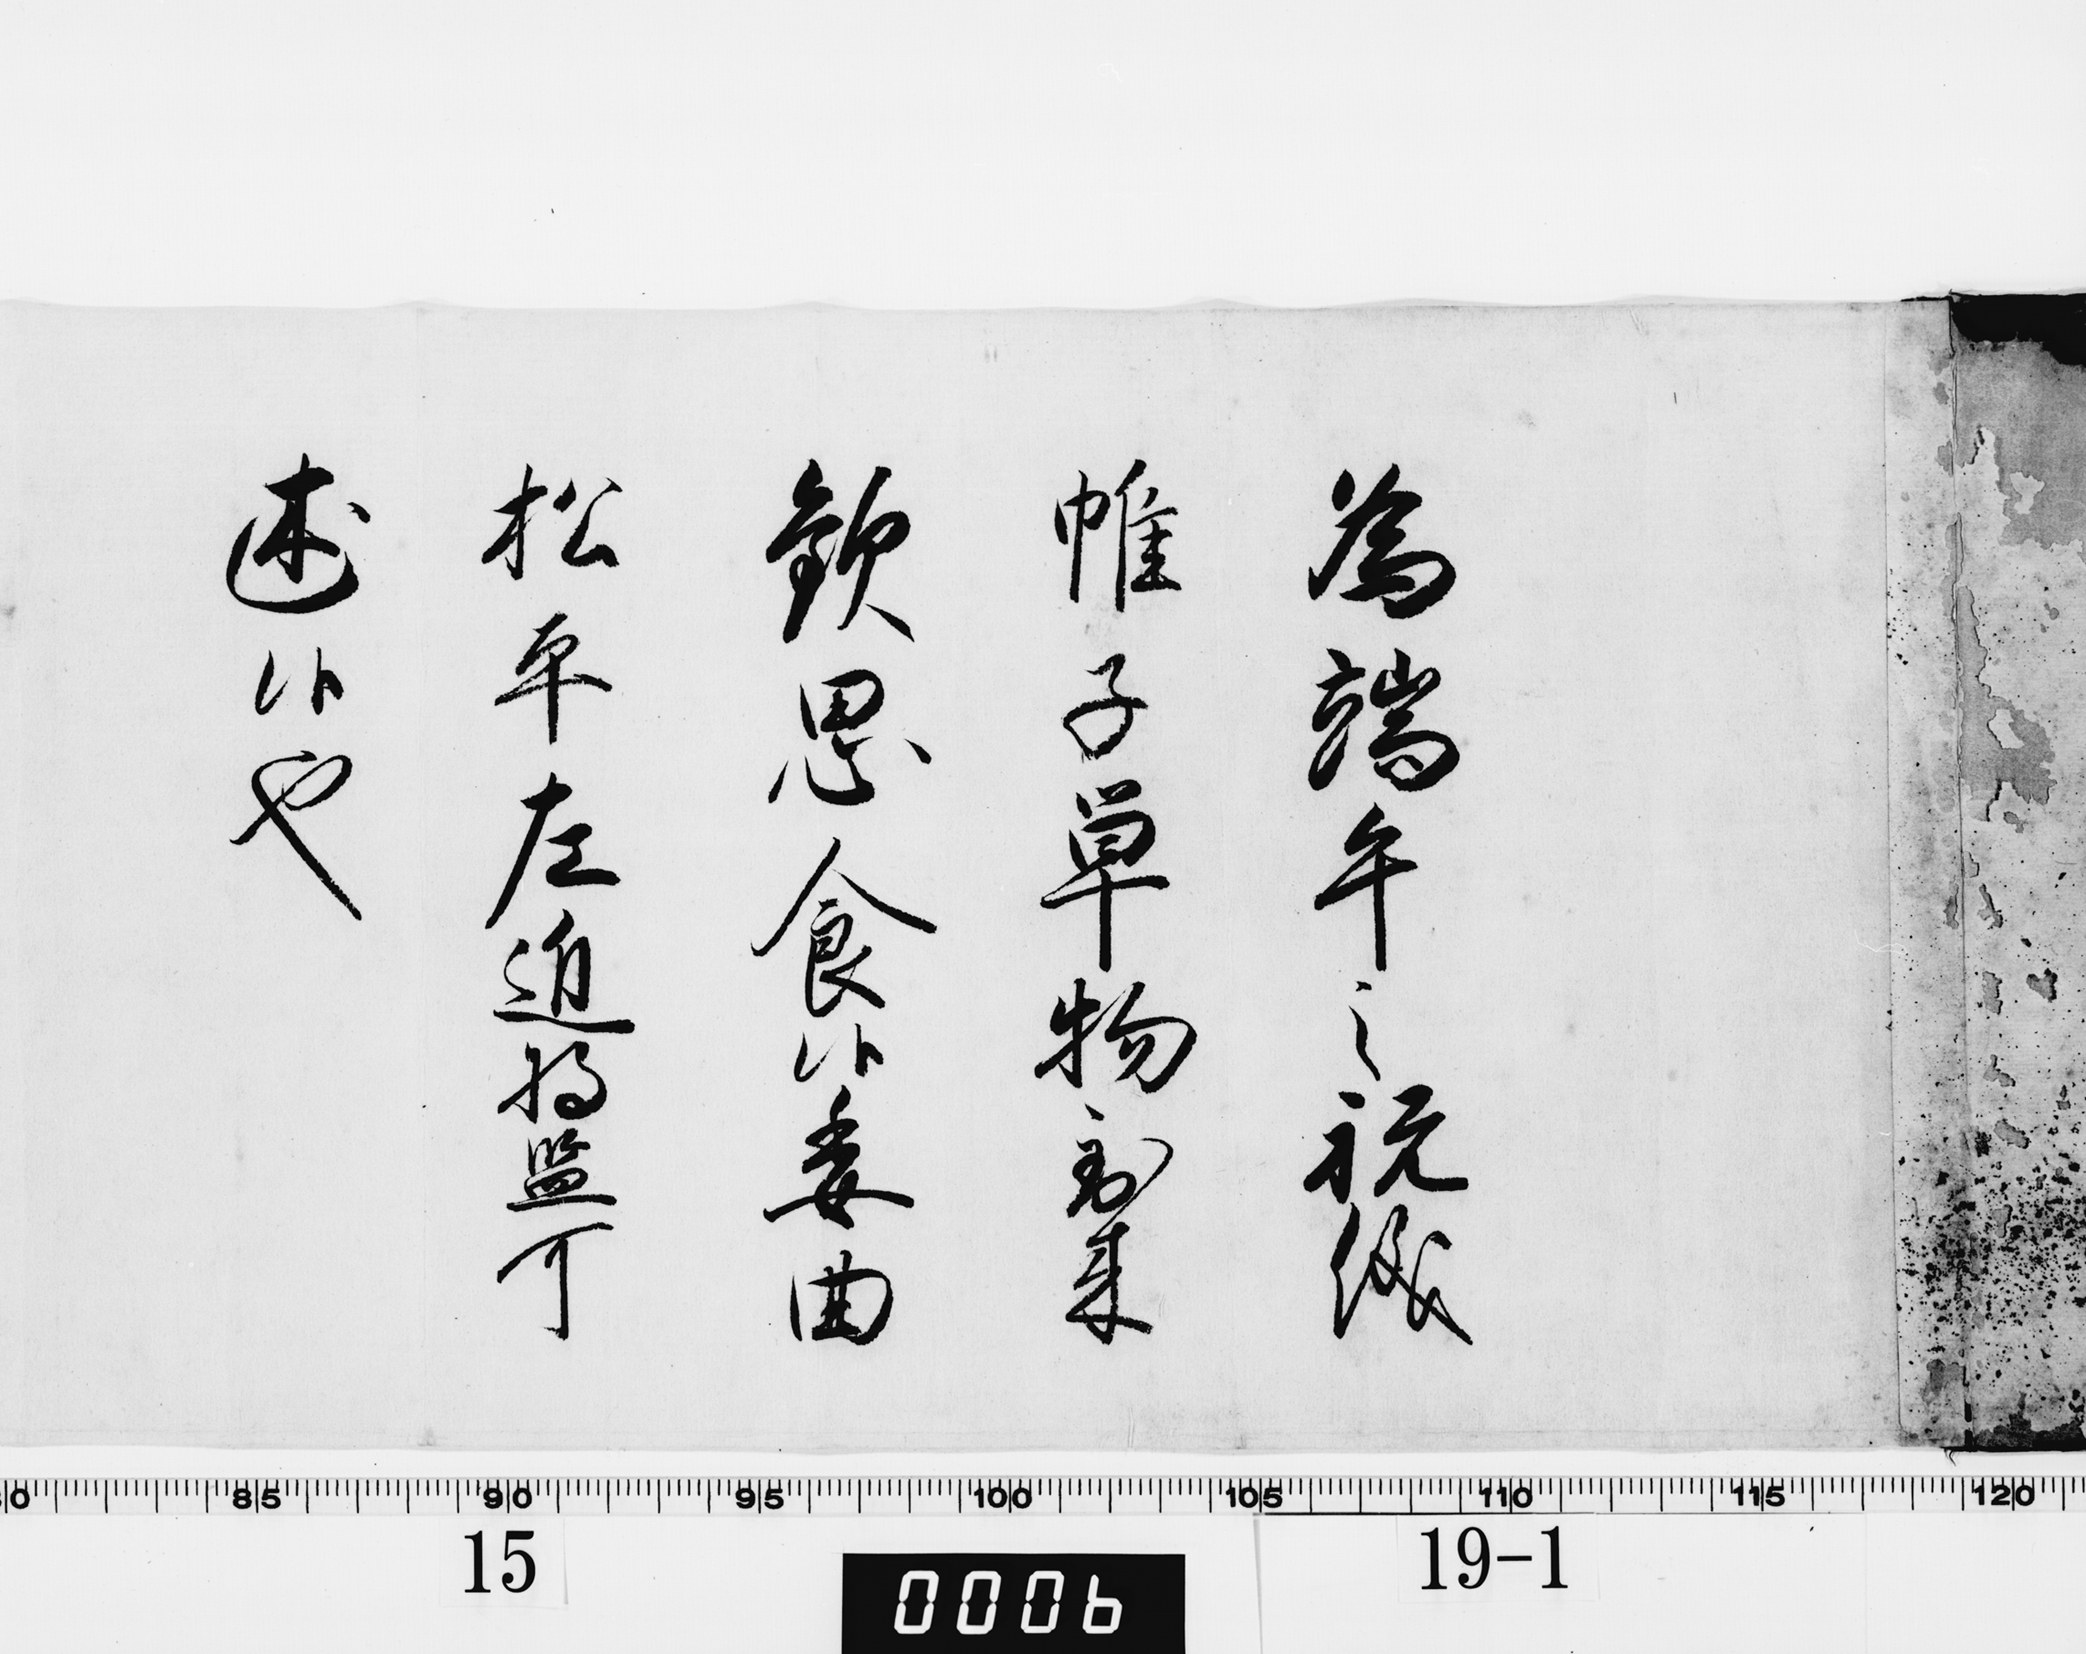 為端午之祝儀
帷子単物到来
歓思食候委曲
松平左近将監可
述候也
80 85 90 95 100 105 110 115 120
15
19-1
0006